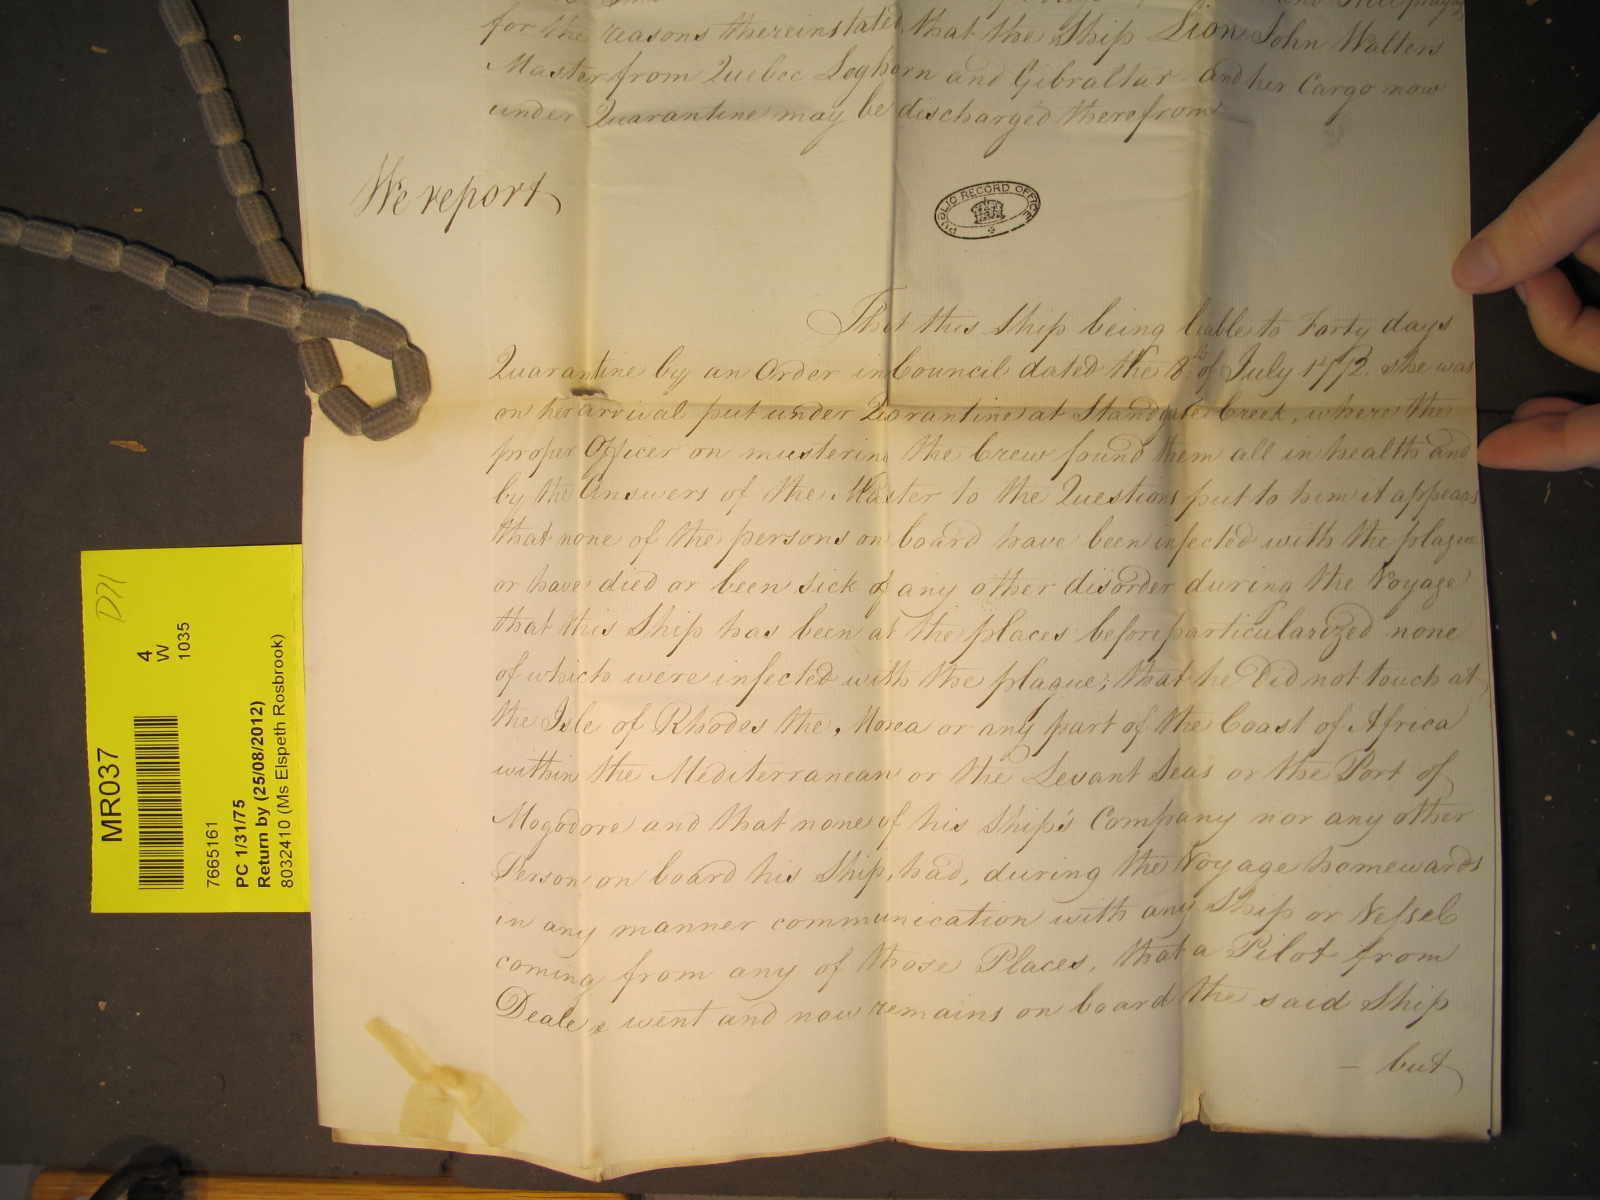 for the reasons therein stated that the Ship Lion John Walters
Master from Quebec Leghorn and Gibraltar and her Cargo now
under Quarantine may be discharged therefrom
We report
PUBLIC RECORD OFFICE
That this Ship being liable to Forty days
Quarantine by an Order in Council dated the 8th of July 1772. she was
on her arrival put under Quarantine at Standgate Creek, where the
proper Officer on mustering the Crew found them all in health and
by the Answers of the Master to the Questions put to him it appears
that none of the persons on board have been infected with the plague
or have died or been sick of any other disorder during the Voyage
that this Ship has been at the places before particularized none
of which were infected with the plague; that he did not touch at
the Isle of Rhodes the Morea or any part of the Coast of Africa
within the Mediterranean or the Levant Seas or the Port of
Mogodore and that none of his Ship's Company nor any other
Person on board his Ship, had, during the Voyage homewards
in any manner communication with any Ship or Vessel
coming from any of those Places, that a Pilot from
Deale went and now remains on board the said Ship
— but
D71
4
W
1035
MR037
7665161
PC 1/31/75
Return by (25/08/2012)
8032410 (Ms Elspeth Rosbrook)